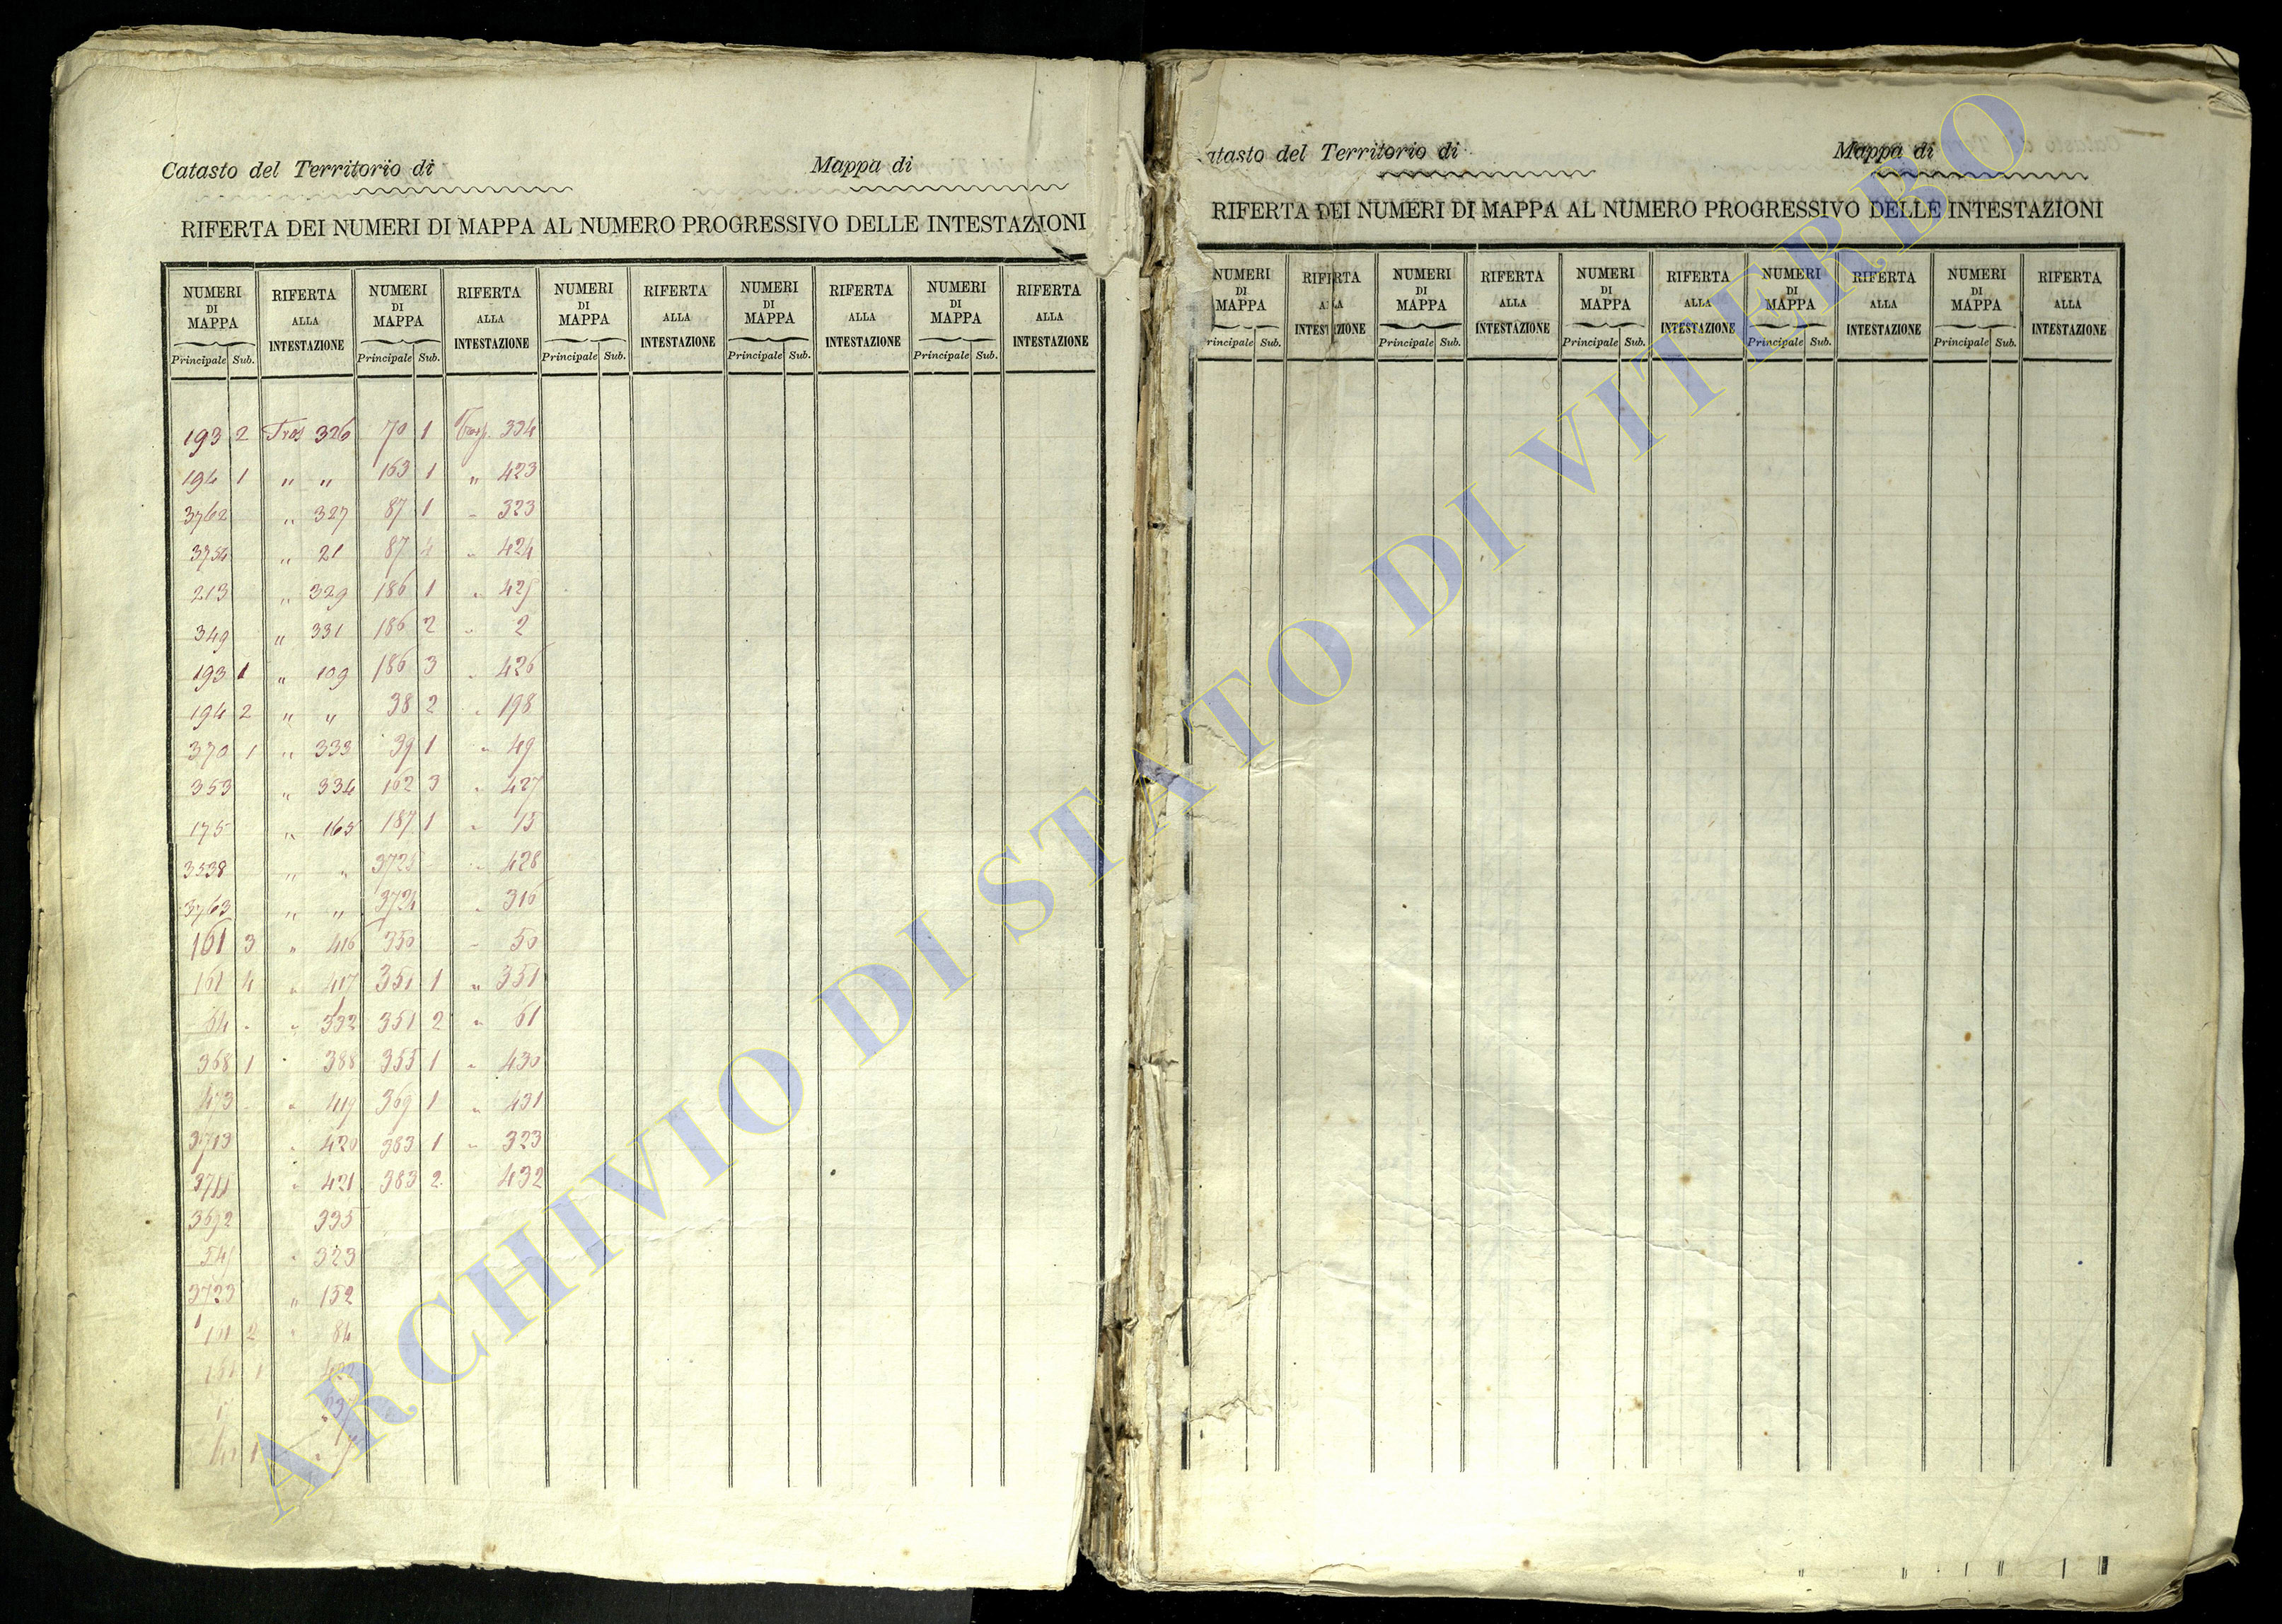 Catasto del Territorio di Mappa di
RIFERTA DEI NUMERI DI MAPPA AL NUMERO PROGRESSIVO DELLE INTESTAZIONI
NUMERI DI MAPPA RIFERTA ALLA INTESTAZIONE NUMERI DI MAPPA RIFERTA ALLA INTESTAZIONE NUMERI DI MAPPA RIFERTA ALLA INTESTAZIONE NUMERI DI MAPPA RIFERTA ALLA INTESTAZIONE NUMERI DI MAPPA RIFERTA ALLA INTESTAZIONE
Principale Sub. Principale Sub. Principale Sub. Principale Sub. Principale Sub.
193 2 Tras 326 70 1 Trasp. 334
194 1 " " 163 1 " 423
3762 " 327 87 1 " 323
3754 " 21 87 4 " 424
213 " 329 186 1 " 425
349 " 331 186 2 " 2
193 1 " 109 186 3 " 426
194 2 " " 38 2 " 198
370 1 " 333 39 1 " 49
353 " 334 162 3 " 427
175 " 165 187 1 " 15
3538 " " 3725 " 428
3763 " " 3724 " 316
161 3 " 416 350 " 50
161 4 " 417 351 1 " 351
54 " 332 351 2 " 61
368 1 388 355 1 " 430
473 " 419 369 1 " 431
3713 " 420 383 1 " 323
3711 " 421 383 2 432
3592 335
541 " 323
3723 " 152
161 2 " 84
181 1
atasto del Territorio di Mappa di
RIFERTA DEI NUMERI DI MAPPA AL NUMERO PROGRESSIVO DELLE INTESTAZIONI
NUMERI DI MAPPA RIFERTA ALLA INTESTAZIONE NUMERI DI MAPPA RIFERTA ALLA INTESTAZIONE NUMERI DI MAPPA RIFERTA ALLA INTESTAZIONE NUMERI DI MAPPA RIFERTA ALLA INTESTAZIONE NUMERI DI MAPPA RIFERTA ALLA INTESTAZIONE
rincipale Sub. Principale Sub. Principale Sub. Principale Sub. Principale Sub.
ARCHIVIO DI STATO DI VITERBO